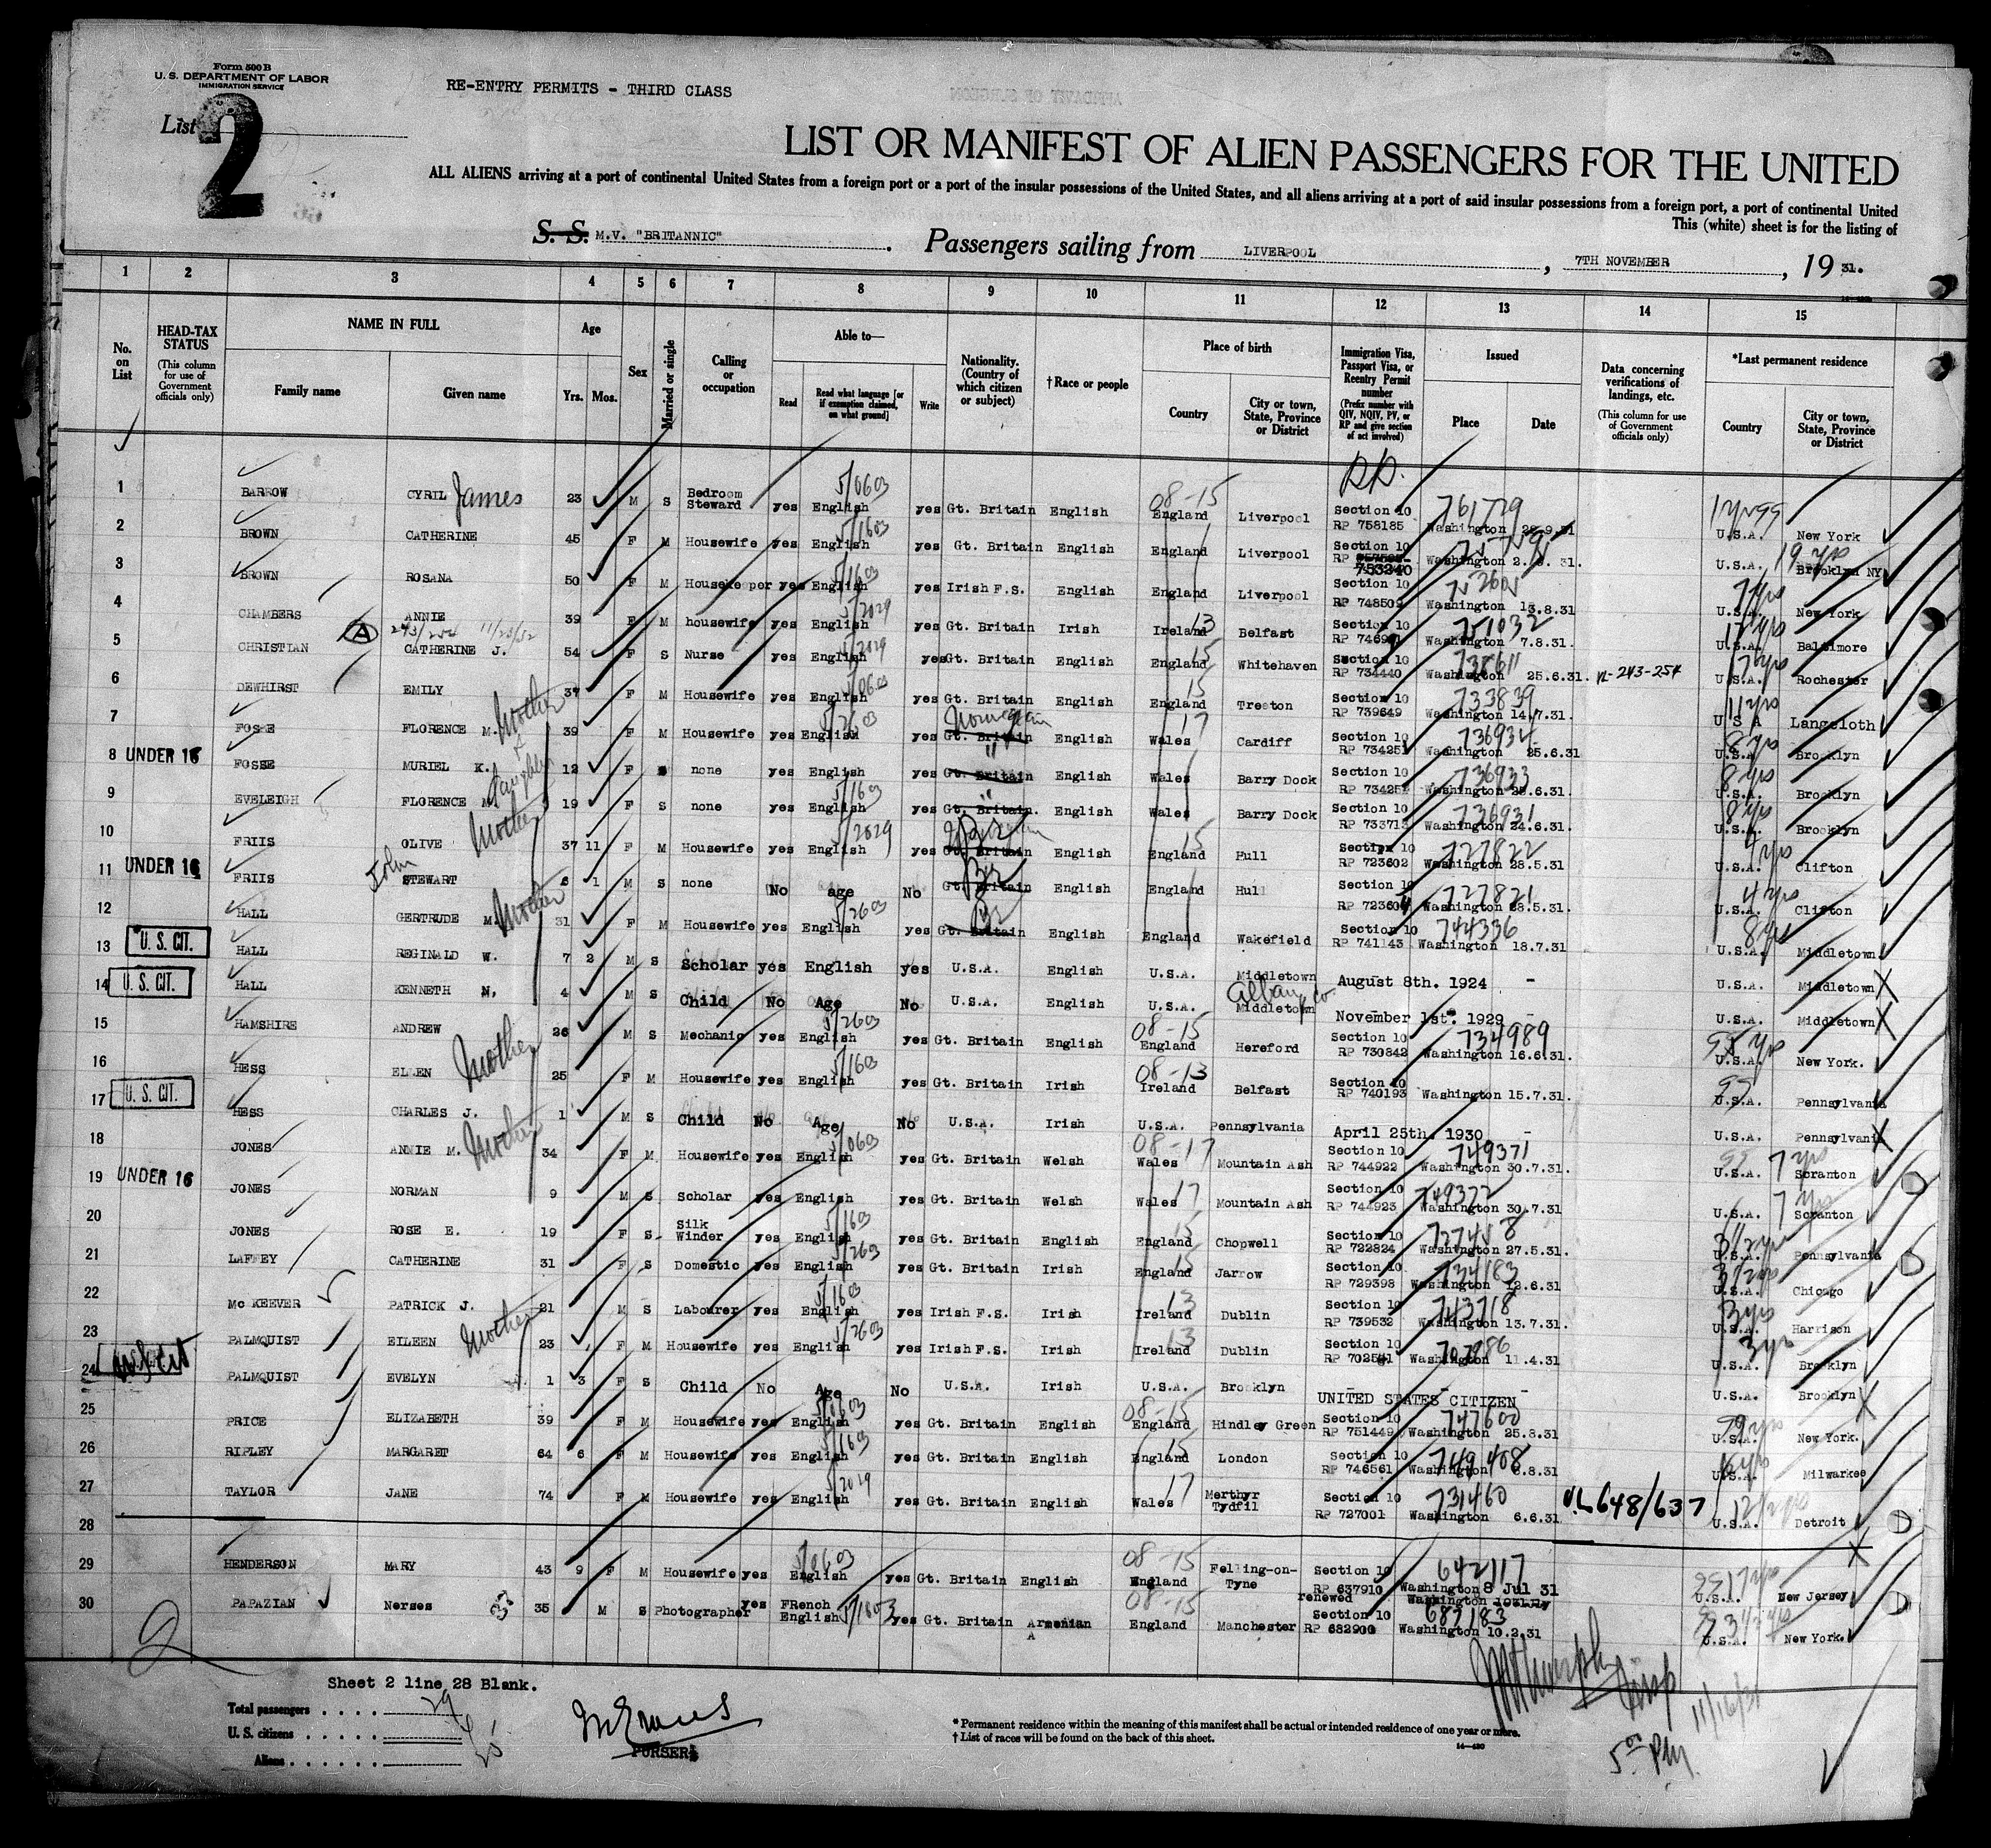 Form 500 B
U. S. DEPARTMENT OF LABOR
IMMIGRATION SERVICE
RE-ENTRY PERMITS - THIRD CLASS
List 2
LIST OR MANIFEST OF ALIEN PASSENGERS FOR THE UNITED
ALL ALIENS arriving at a port of continental United States from a foreign port or a port of the insular possessions of the United States, and all aliens arriving at a port of said insular possessions from a foreign port, a port of continental United
This (white) sheet is for the listing of
S. S. M.V. "BRITANNIC" . Passengers sailing from LIVERPOOL , 7TH NOVEMBER , 19 31.
1 2 3 4 5 6 7 8 9 10 11 12 13 14 15
No. on List
HEAD-TAX STATUS (This column for use of Government officials only)
NAME IN FULL Family name Given name
Age Yrs. Mos.
Sex
Married or single
Calling or occupation
Able to— Read Read what language [or if exemption claimed, on what ground] Write
Nationality. (Country of which citizen or subject)
† Race or people
Place of birth Country City or town, State, Province or District
Immigration Visa, Passport Visa, or Reentry Permit number (Prefix number with QIV, NQIV, PV, or RP and give section of act involved)
Issued Place Date
Data concerning verifications of landings, etc. (This column for use of Government officials only)
*Last permanent residence Country City or town, State, Province or District
1 BARROW CYRIL James 23 M S Bedroom Steward yes English 5/0603 yes Gt. Britain English 08-15 England Liverpool Section 10 RP 758185 761729 Washington U.S.A. New York
2 BROWN CATHERINE 45 F M Housewife yes English 5/1603 yes Gt. Britain English England Liverpool Section 10 RP 753240 Washington U.S.A. 19 yrs Brooklyn NY
3 BROWN ROSANA 50 F M Housekeeper yes English 5/1603 yes Irish F.S. English England Liverpool Section 10 RP 748509 Washington 13.8.31 7 yrs U.S.A. New York
4 CHAMBERS ANNIE 39 F M housewife yes English 5/2029 yes Gt. Britain Irish 13 Ireland Belfast Section 10 751032 Washington 7.8.31 U.S.A. Baltimore
A 243/254 11/23/32
5 CHRISTIAN CATHERINE J. 54 F S Nurse yes English 5/2029 yes Gt. Britain English 15 England Whitehaven Section 10 RP 734440 738611 Washington 25.6.31. VL-243-254 U.S.A. Rochester
6 DEWHIRST EMILY 37 F M Housewife yes English yes Gt. Britain English 15 England Treeton Section 10 RP 739649 733839 Washington 14.7.31. 11 yrs U S A Langeloth
7 FOSSE FLORENCE M. Mother 39 F M Housewife yes English 5/2603 yes Gt. Britain Norwegian English 17 Wales Cardiff Section 10 RP 734251 736934 Washington 25.6.31 8 yrs U.S.A. Brooklyn
8 UNDER 16 FOSSE MURIEL K. daughter 12 F S none yes English yes Gt. Britain " English Wales Barry Dock Section 10 RP 734252 736933 Washington 25.6.31. 8 yrs U.S.A. Brooklyn
9 EVELEIGH FLORENCE M. 19 F S none yes English 5/1603 yes Gt. Britain. " English Wales Barry Dock Section 10 RP 733713 736931 Washington 24.6.31. 8 yrs U.S.A. Brooklyn
10 FRIIS OLIVE Mother 37 11 F M Housewife yes English 5/2029 yes Gt. Britain English 15 England Hull Section 10 RP 723602 727822 Washington 28.5.31. 4 yrs U.S.A. Clifton
11 UNDER 16 FRIIS John STEWART 6 1 M S none No age No Gt. Britain Br English England Hull Section 10 RP 723604 727821 Washington 28.5.31. 4 yrs U.S.A. Clifton
12 HALL GERTRUDE M. Mother 31 F M Housewife yes English 5/2603 yes Gt. Britain Br English England Wakefield Section 10 RP 741143 744336 Washington 18.7.31 8 yrs U.S.A. Middletown
13 U. S. CIT. HALL REGINALD W. 7 2 M S Scholar yes English yes U.S.A. English U.S.A. Middletown August 8th. 1924 - U.S.A. Middletown X
14 U. S. CIT. HALL KENNETH N. 4 M S Child No Age No U.S.A. English U.S.A. Middletown Albany Co. November 1st. 1929 - U.S.A. Middletown X
15 HAMSHIRE ANDREW 26 M S Mechanic yes English 5/2603 yes Gt. Britain English 08-15 England Hereford Section 10 RP 730842 734989 Washington 16.6.31. U.S.A. New York.
16 HESS ELLEN Mother 25 F M Housewife yes English 5/1603 yes Gt. Britain Irish 08-13 Ireland Belfast Section 10 RP 740193 Washington 15.7.31. U.S.A. Pennsylvania
17 U. S. CIT. HESS CHARLES J. 1 M S Child No Age No U.S.A. Irish U.S.A. Pennsylvania April 25th. 1930 - U.S.A. Pennsylvania X
18 JONES ANNIE M. Mother 34 F M Housewife yes English 5/0603 yes Gt. Britain Welsh 08-17 Wales Mountain Ash Section 10 RP 744922 749371 Washington 30.7.31. 7 yrs U.S.A. Scranton
19 UNDER 16 JONES NORMAN 9 M S Scholar yes English yes Gt. Britain Welsh 17 Wales Mountain Ash Section 10 RP 744923 749372 Washington 30.7.31 7 yrs U.S.A. Scranton
20 JONES ROSE E. 19 F S Silk Winder yes English 5/1603 yes Gt. Britain English 15 England Chopwell Section 10 RP 722824 727458 Washington 27.5.31. U.S.A. Pennsylvania
21 LAFFEY CATHERINE 31 F S Domestic yes English 5/2603 yes Gt. Britain Irish 15 England Jarrow Section 10 RP 729398 734183 Washington 12.6.31 U.S.A. Chicago
22 Mc KEEVER PATRICK J. 21 M S Labourer yes English 5/1603 yes Irish F.S. Irish 13 Ireland Dublin Section 10 RP 739532 743718 Washington 13.7.31. 3 yrs U.S.A. Harrison
23 PALMQUIST EILEEN Mother 23 F M Housewife yes English 5/2603 yes Irish F.S. Irish 13 Ireland Dublin Section 10 RP 702541 Washington 11.4.31 3 yrs U.S.A. Brooklyn
24 U.S. Cit PALMQUIST EVELYN 1 3 F S Child No Age No U.S.A. Irish U.S.A. Brooklyn UNITED STATES CITIZEN - U.S.A. Brooklyn X
25 PRICE ELIZABETH 39 F M Housewife yes English 5/0603 yes Gt. Britain English 08-15 England Hindley Green Section 10 RP 751449 747600 Washington 25.8.31 U.S.A. New York.
26 RIPLEY MARGARET 64 6 F M Housewife yes English 5/1603 yes Gt. Britain English 15 England London Section 10 RP 746561 749408 Washington 8.8.31 U.S.A. Milwarkee
27 TAYLOR JANE 74 F M Housewife yes English yes Gt. Britain English 17 Wales Merthyr Tydfil Section 10 RP 727001 731460 Washington 6.6.31 VL648/637 U.S.A. Detroit
28
29 HENDERSON MARY 43 9 F M Housewife yes English 5/0603 yes Gt. Britain English 08-15 England Felling-on-Tyne Section 10 RP 637910 renewed 642117 Washington 8 Jul 31 U.S.A. New Jersey
30 PAPAZIAN Nerses 35 M S Photographer yes FRench English 5/1803 yes Gt. Britain Armenian 08-15 England Manchester Section 10 RP 682900 687183 Washington 10.2.31 U.S.A. New York.
2
Sheet 2 line 28 Blank.
Total passengers . . . . 29
U. S. citizens . . . . 4
Aliens . . . . . . 25
PURSER
* Permanent residence within the meaning of this manifest shall be actual or intended residence of one year or more.
† List of races will be found on the back of this sheet.
14—420
Insp
11/16/31
5 00 PM.